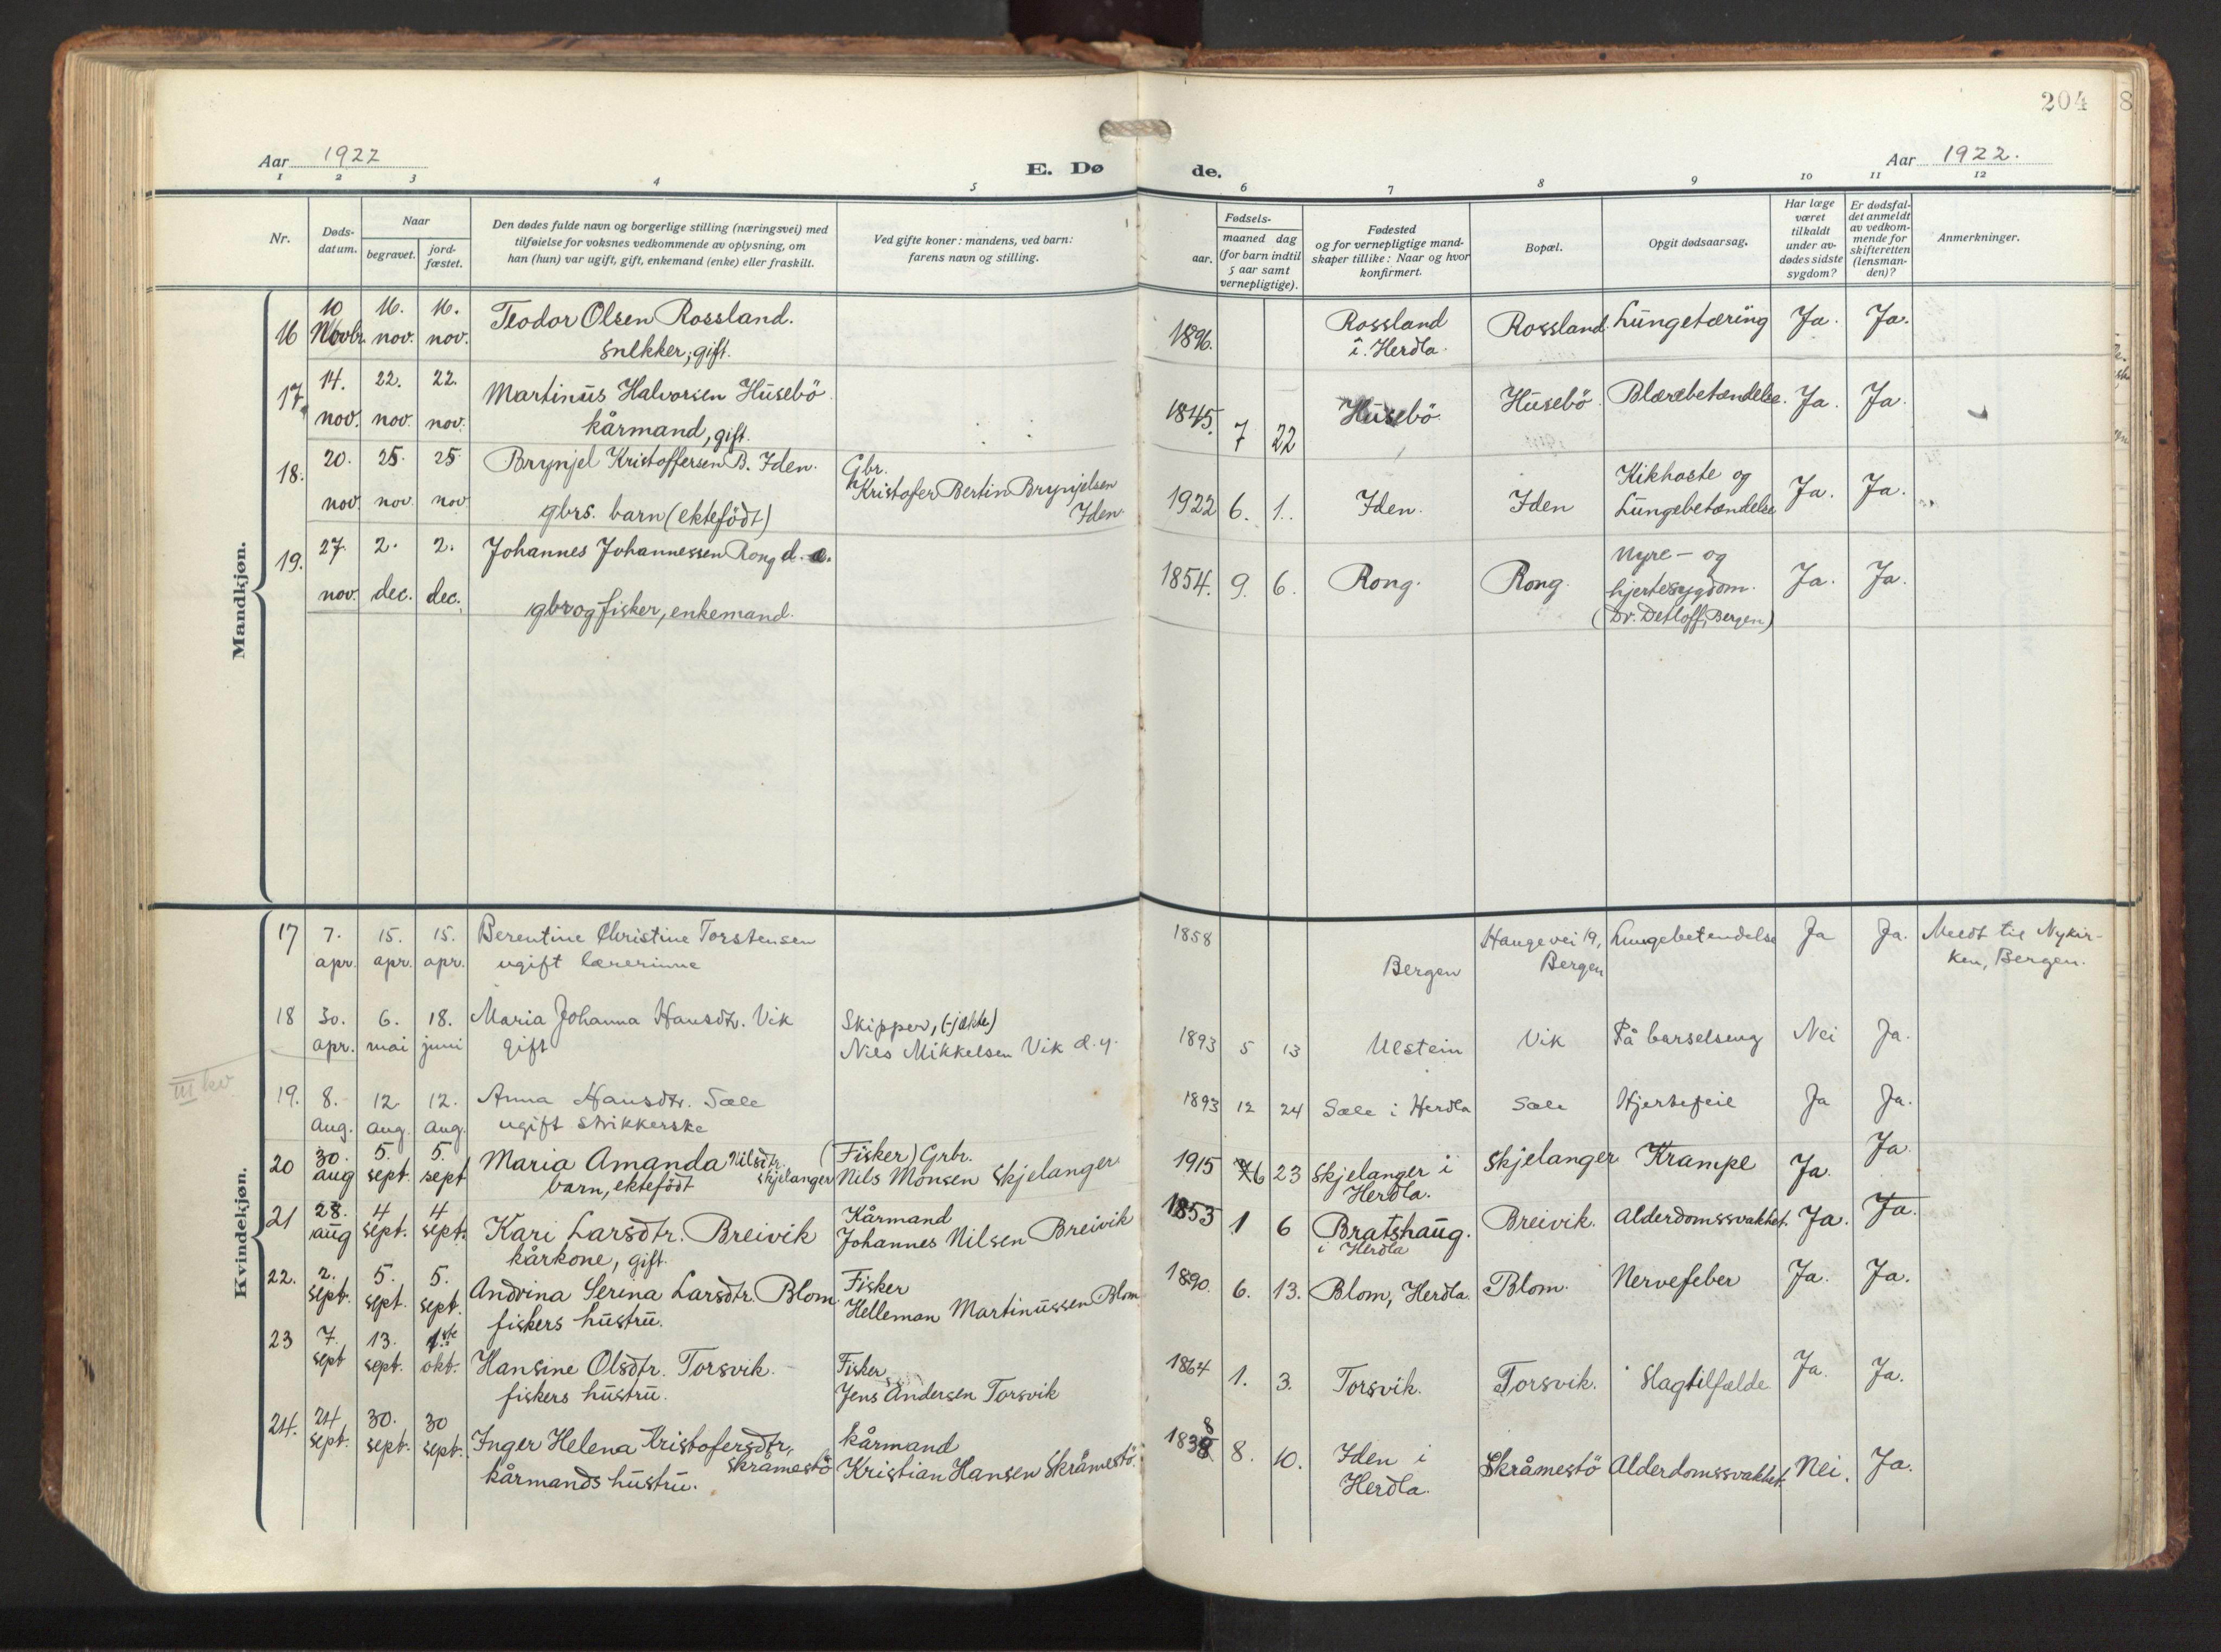 204
8
Aar 1922
E. Dø
de.
Aar 1922.
1 2 3 4 5 6 7 8 9 10 11 12
Nr.
Døds-
datum.
Naar
begravet.
jord-
fæstet.
Den dødes fulde navn og borgerlige stilling (næringsvei) med
tilføielse for voksnes vedkommende av oplysning, om
han (hun) var ugift, gift, enkemand (enke) eller fraskilt.
Ved gifte koner: mandens, ved barn:
farens navn og stilling.
Fødsels-
aar.
maaned dag
(for barn indtil
5 aar samt
vernepligtige).
Fødested
og for vernepligtige mand-
skaper tillike: Naar og hvor
konfirmert.
Bopæl.
Opgit dødsaarsag.
Har læge
været
tilkaldt
under av-
dødes sidste
sygdom?
Er dødsfal-
det anmeldt
av vedkom-
mende for
skifteretten
(lensman-
den)?
Anmerkninger.
Mandkjøn.
16 10 16. 16. Teodor Olsen Rossland. 1896. Rossland Rossland. Lungetæring Ja. Ja.
Novbr. nov. nov. snekker, gift. i. Herdla.
17. 14. 22. 22. Martinus Halvorsen Husebö. 1845. 7 22 Husebö. Husebö. Blærebetændelse. Ja. Ja.
nov. nov. nov. kårmand, gift.
18. 20. 25. 25 Brynjel Kristoffersen B. Iden. Gbr. Kikhoste og
nov. nov. nov Kristofer Bertin Brynjelsen 1922 6. 1. Iden. Iden Lungebetændelse Ja. Ja.
gbrs. barn (ektefödt) Iden.
19. 27. 2. 2. Johannes Johannessen Rong d. e. 1854. 9. 6. Rong. Rong. Nyre- og Ja. Ja.
nov. dec. dec. gbr og fisker, enkemand. hjertesygdom.
(Dr. Detloff, Bergen)
Kvindekjøn.
17 7. 15. 15. Berentine Christine Torstensen 1858 Haugevei 19, Lungebetendelse Ja Ja. Meldt til Nykir-
apr. apr. apr. ugift lærerinne Bergen Bergen ken, Bergen.
18 30. 6. 18. Maria Johanna Hansdtr. Vik Skipper, (-jækte) 1893 5 13 Ulstein Vik På barselseng Nei Ja.
apr. mai juni gift Nils Mikkelsen Vik d.y.
III kv
19. 8. 12. 12. Anna Hansdtr. Sæle 1893 12 24 Sæle i Herdla Sæle Hjertefeil Ja Ja.
aug. aug. aug. ugift strikkerske
20 30. 5. 5. Maria Amanda Nilsdtr. (Fisker) Grbr. 1915 6 23 Skjelanger i Skjelanger Krampe Ja. Ja.
aug sept. sept barn, ektefödt Skjelanger Nils Monsen Skjelanger Herdla.
21 28. 4 4 Kari Larsdtr. Breivik Kårmand 1853 1 6 Bratshaug. Breivik. Alderdomssvakhet. Ja. Ja.
aug sept. sept. kårkone, gift. Johannes Nilsen Breivik i Herdla
22. 2. 5. 5. Andrina Serina Larsdtr. Blom Fisker 1890. 6. 13. Blom, Herdla. Blom. Nervefeber Ja. Ja.
sept. sept. sept. fiskers hustru. Helleman Martinussen Blom
23 7. 13. 1ste Hansine Olsdtr. Torsvik. Fisker 1864 1. 3. Torsvik. Torsvik. Slagtilfælde Ja. Ja.
sept sept. okt. fiskers hustru. Jens Andersen Torsvik
24. 24 30. 30 Inger Helena Kristofersdtr. kårmand 1838 8. 10. Iden i Skråmestö Alderdomssvakhet. Nei. Ja.
sept. sept. sept. kårmands hustru. Skråmestö Kristian Hansen Skråmestö. Herdla.